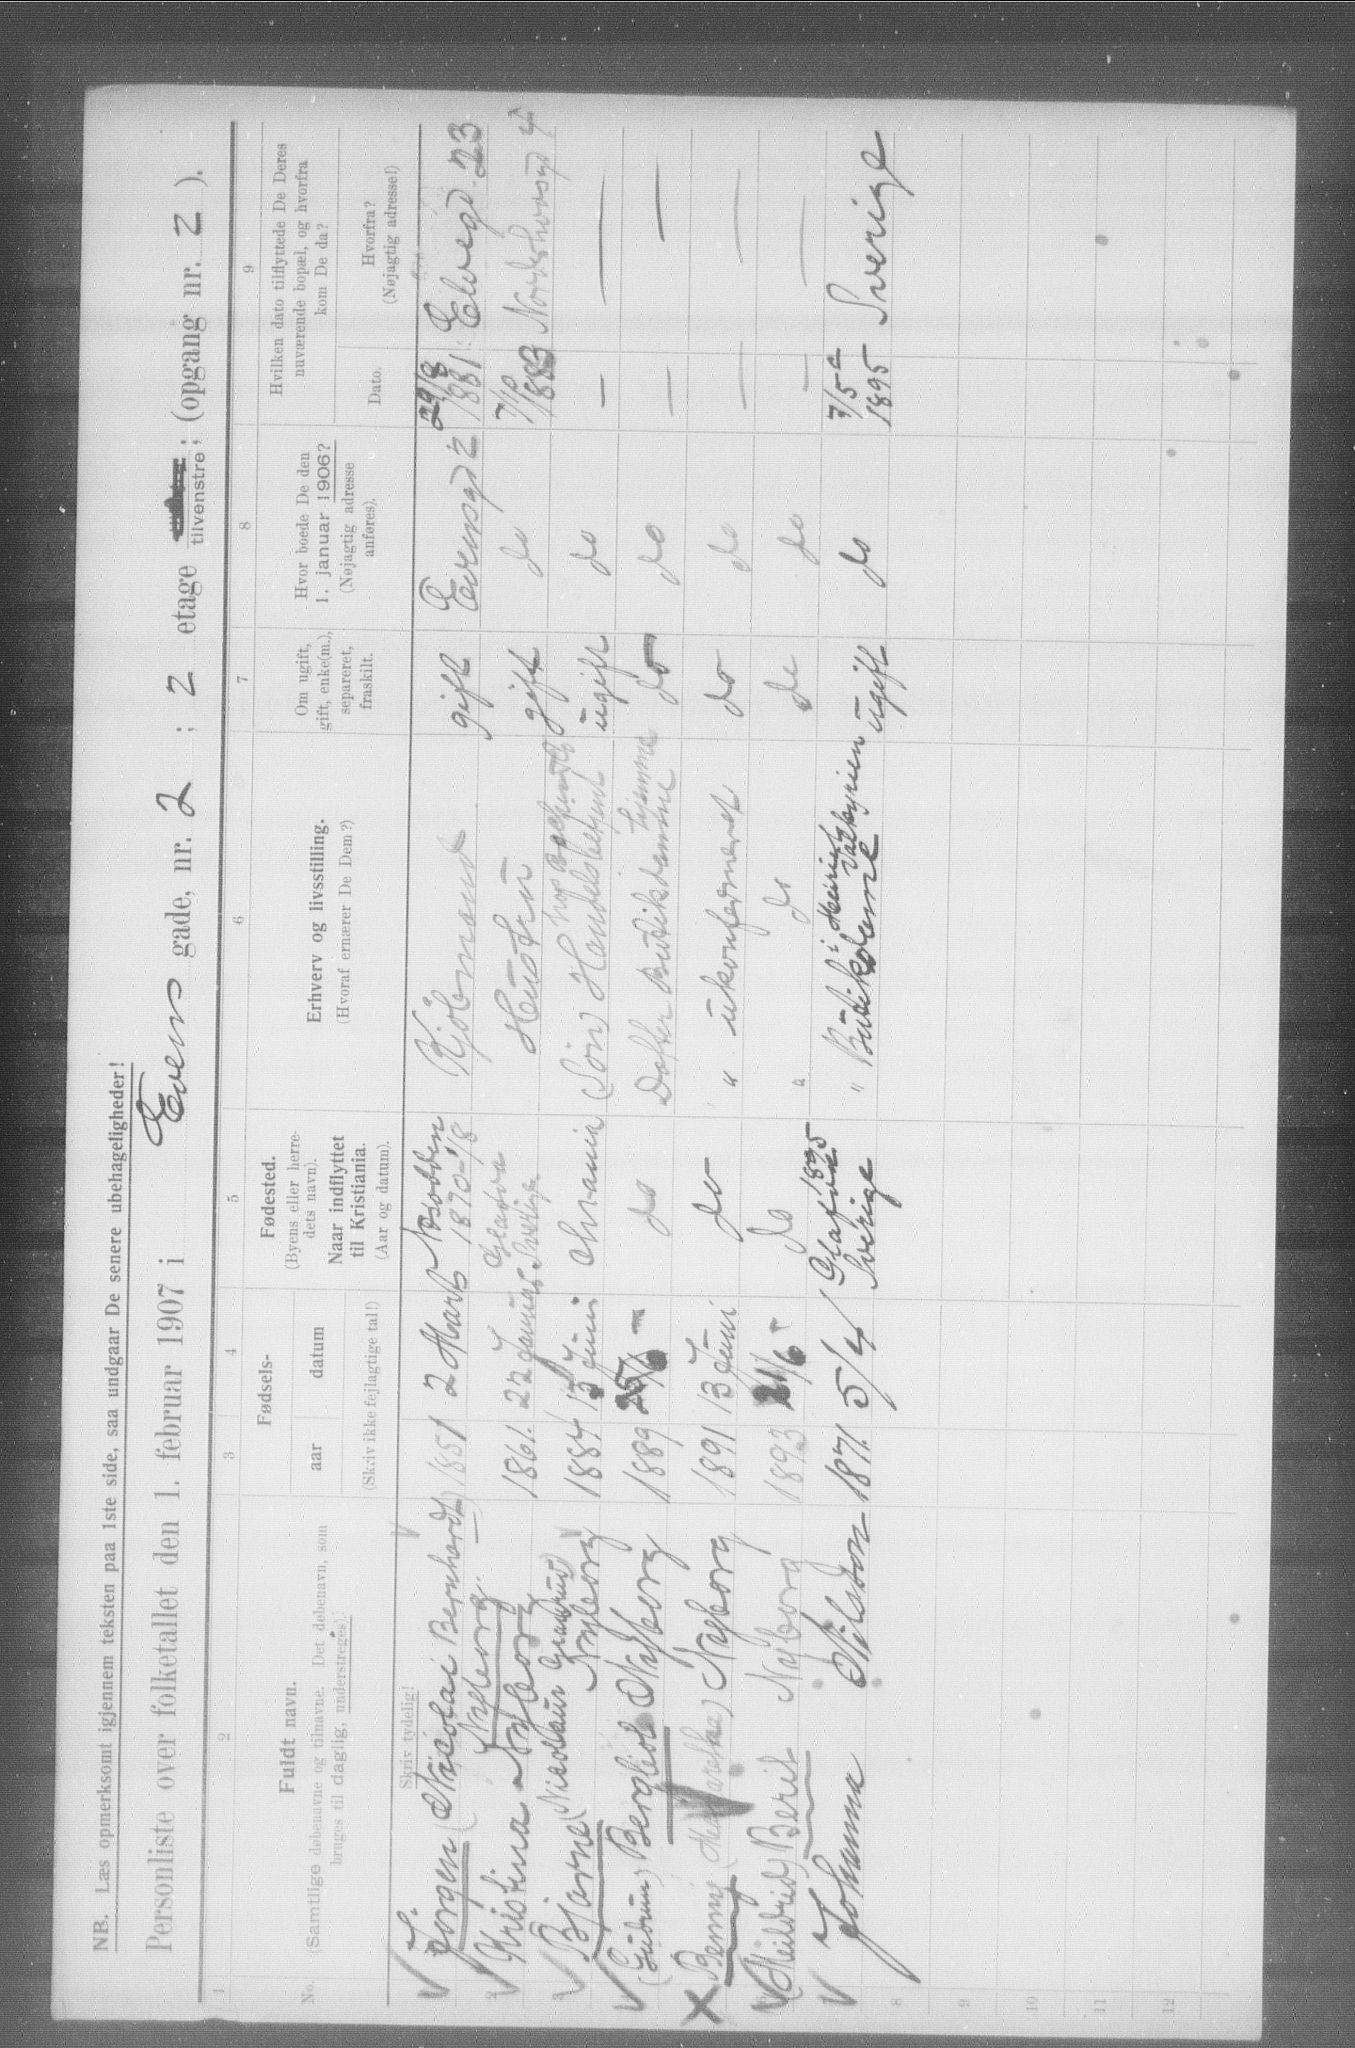 NB. Læs opmerksomt igjennem teksten paa 1ste side, saa undgaar De senere ubehageligheder!
Personliste over folketallet den 1. februar 1907 i Evens gade, nr. 2 ; 2 etage tilvenstre; (opgang nr. 2 ).
1 2 3 4 5 6 7 8 9
No.
Fuldt navn.
(Samtlige døbenavne og tilnavne. Det døbenavn, som
bruges til daglig, understreges).
Skriv tydelig!
Fødsels-
aar datum
(Skriv ikke fejlagtige tal!)
Fødested.
(Byens eller herre-
dets navn).
Naar indflyttet
til Kristiania.
(Aar og datum).
Erhverv og livsstilling.
(Hvoraf ernærer De Dem?)
Om ugift,
gift, enke(m.),
separeret,
fraskilt.
Hvor boede De den
1. januar 1906?
(Nøjagtig adresse
anføres).
Hvilken dato tilflyttede De Deres
nuværende bopæl, og hvorfra
kom De da?
Dato.
Hvorfra?
(Nøjagtig adresse!)
Jörgen (Nicolai Bernhardt) 1851 2 Marts Nesodden Kjöbmand gift Evensgd 2 29/8 Elvegd. 23
Nyborg. 1870-18 1881
2 Kristina Nyborg 1861. 22 Januar Sverige Hustru gift do 1883
3 Bjarne (Nicolaus 1884 13 Juni Chrania (Sön) Handelsbetjent ugift do — —
Nyborg
(Gudrun) Bergliot Nyborg 1889 25/6 — do Datter Butikdamme hjemme do do — —
Benny Nyborg 1891 13 Juni do " ukonfermeret do do — —
(Hildrid) Berit Nyborg 1893 21/6 - do " do do do — —
Johanna Nilsson 1871. 5/4 1895 " Butikdame i ugift do 7/5 Sverige
Sverige 1895
8
9
10
11
12